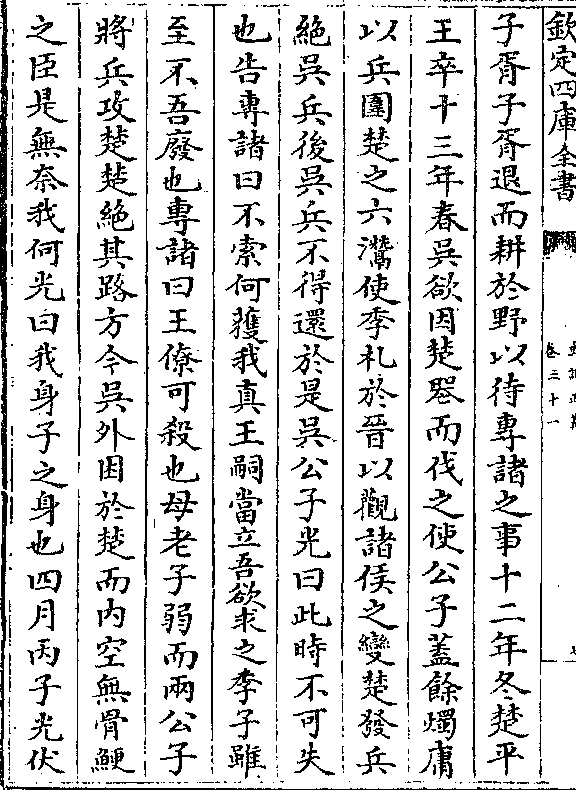 欽定四庫全書
卷三十一
子胥子胥退而耕於野以待專諸之事十二年冬楚平
王卒十三年春吳欲因楚喪而伐之使公子蓋餘燭庸
以兵圍楚之六灊使季札於晉以觀諸侯之變楚發兵
絶吳兵後吳兵不得還於是吳公子光曰此時不可失
也告專諸曰不索何獲我真王嗣當立吾欲求之季子雖
至不吾廢也專諸曰王僚可殺也母老子弱而兩公子
將兵攻楚楚絶其路方今吳外困於楚而内空無骨鯁
之臣是無奈我何光曰我身子之身也四月丙子光伏